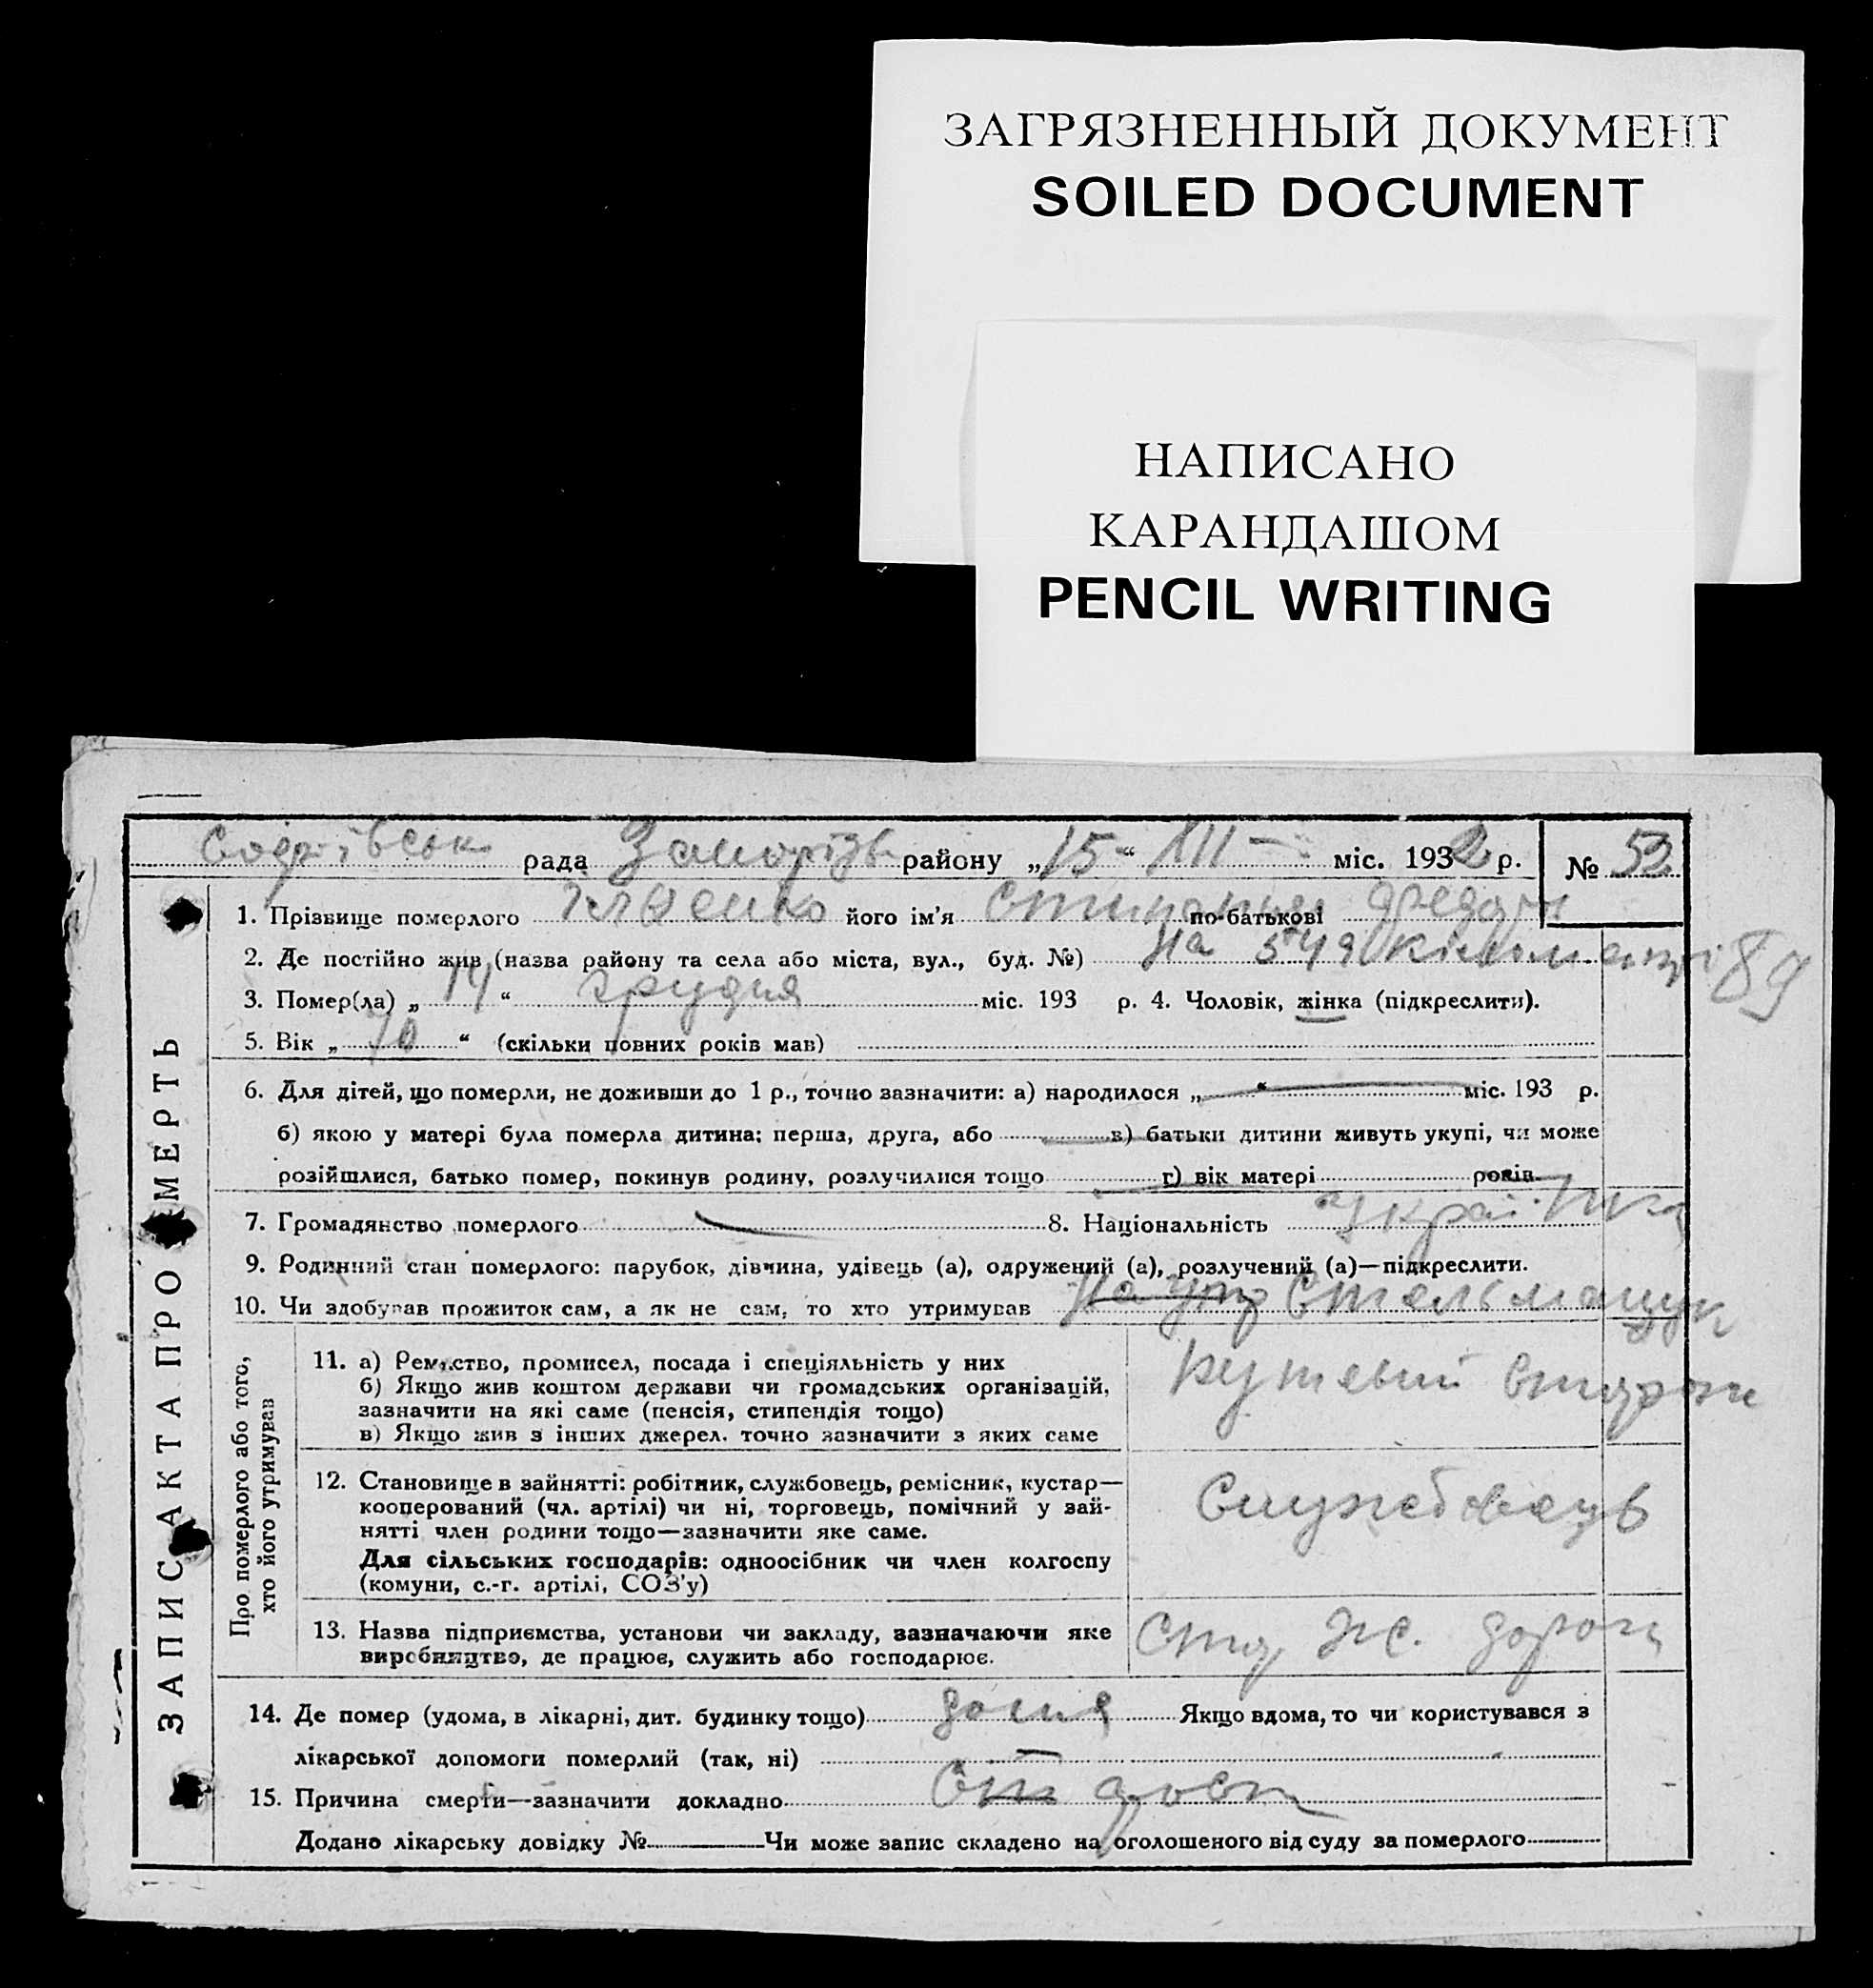 ЗАГРЯЗНЕННЫЙ ДОКУМЕНТ
SOILED DOCUMENT
НАПИСАНО
КАРАНДАШОМ
PENCIL WRITING
ЗАПИС АКТА ПРО СМЕРТЬ
рада району „15“ XII міс. 1932 р. № 53
1. Прізвище померлого його ім'я по-батькові
2. Де постійно жив (назва району та села або міста, вул., буд. №) На
89
3. Помер(ла) „14“ грудня міс. 193 р. 4. Чоловік, жінка (підкреслити).
5. Вік „70“ (скільки повних років мав)
6. Для дітей, що померли, не доживши до 1 р., точно зазначити: а) народилося „ “ міс. 193 р.
б) якою у матері була померла дитина: перша, друга, або в) батьки дитини живуть укупі, чи може
розійшлися, батько помер, покинув родину, розлучилися тощо г) вік матері років.
7. Громадянство померлого 8. Національність українка
9. Родинний стан померлого: парубок, дівчина, удівець (а), одружений (а), розлучений (а)—підкреслити.
10. Чи здобував прожиток сам, а як не сам, то хто утримував На утр Стельмащук
Про померлого або того,
хто його утримував
11. а) Ремество, промисел, посада і спеціяльність у них
б) Якщо жив коштом держави чи громадських організацій,
зазначити на які саме (пенсія, стипендія тощо)
в) Якщо жив з інших джерел. точно зазначити з яких саме
12. Становище в зайнятті: робітник, службовець, ремісник, кустар—
кооперований (чл. артілі) чи ні, торговець, помічний у зай-
нятті член родини тощо—зазначити яке саме.
Для сільських господарів: одноосібник чи член колгоспу
(комуни, с.-г. артілі, СОЗ'у)
Службовець
13. Назва підприємства, установи чи закладу, зазначаючи яке
виробництво, де працює, служить або господарює.
Ж. дорога
14. Де помер (удома, в лікарні, дит. будинку тощо) дома Якщо вдома, то чи користувався з
лікарської допомоги померлий (так, ні) —
15. Причина смерти—зазначити докладно
Додано лікарську довідку № Чи може запис складено на оголошеного від суду за померлого